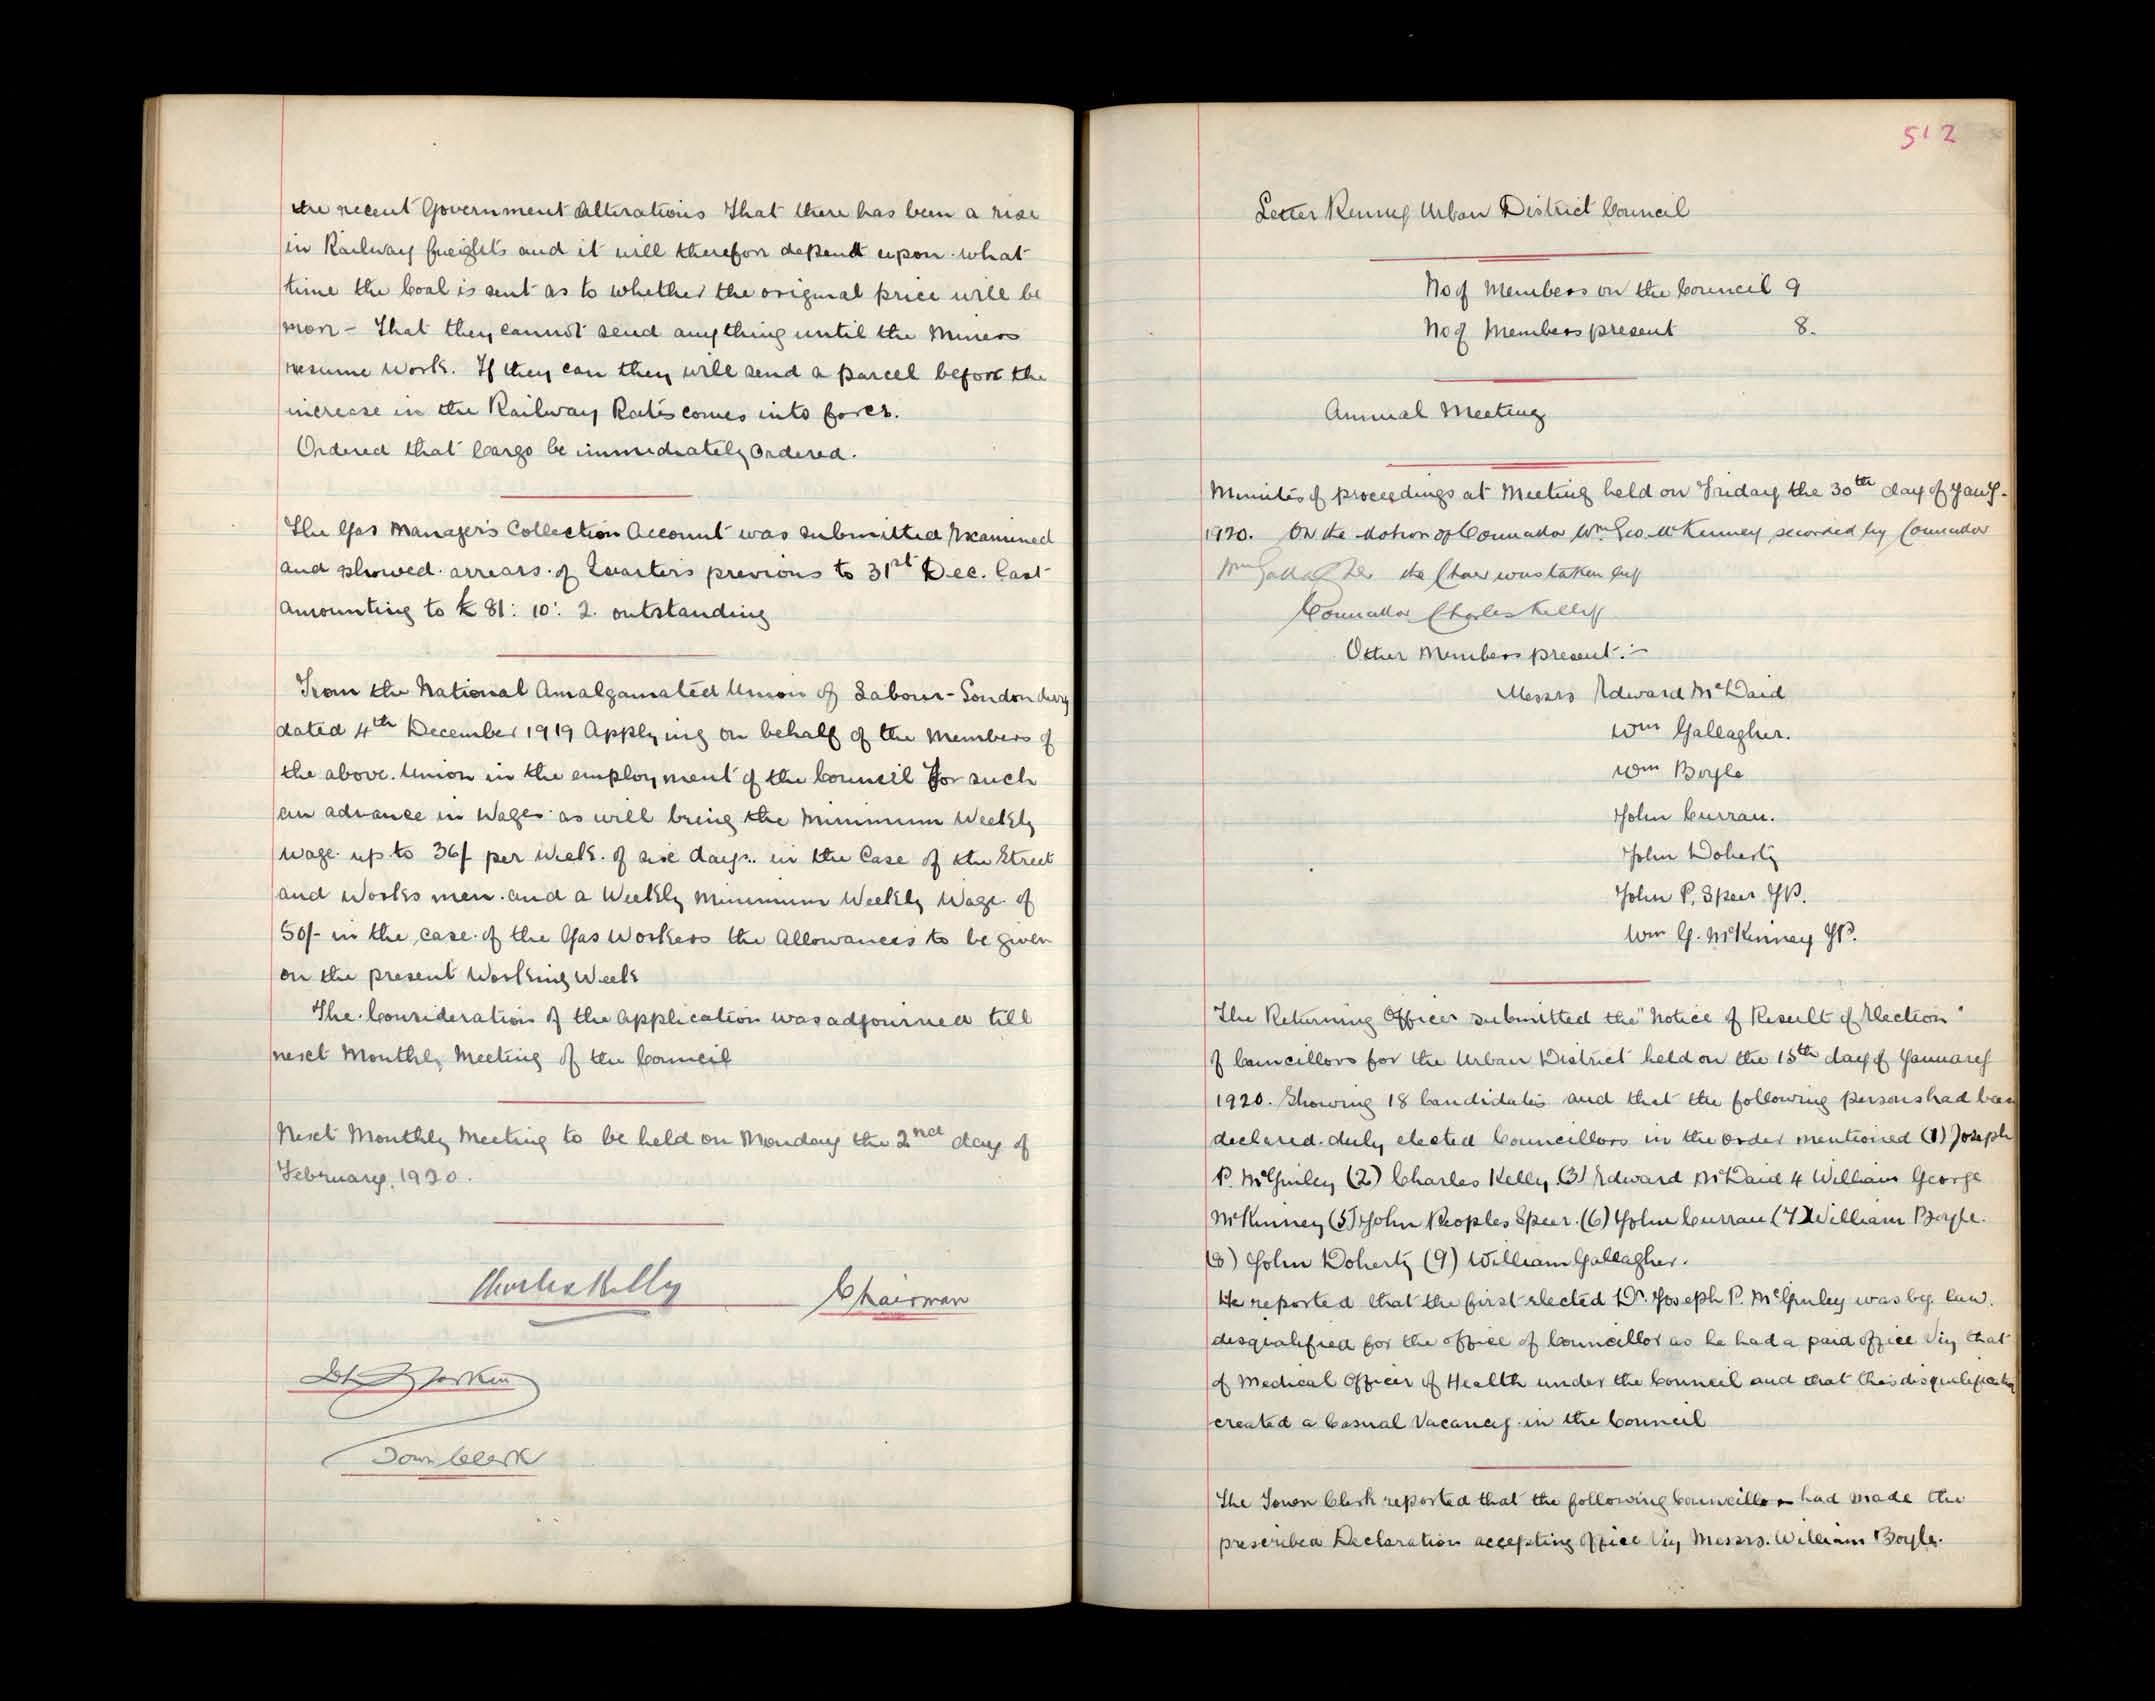 the recent Government Alterations That there has been a rise
in Railway freights and it will therefore depend upon what
time the Coal is sent as to whether the original price will be
more - That they cannot send anything until the Miners
resume work. If they can they will send a parcel before the
increase in the Railway Rates comes into force.
Ordered that Cargo be immediately ordered.
The Gas Manager's Collection Account was submitted Examined
and showed arrears of Quarters previous to 31st Dec. last
amounting to £81: 10: 2. outstanding
From the National Amalgamated Union of Labour - Londonderry
dated 4th December 1919 Applying on behalf of the Members of
the above Union in the employment of the Council for such
an advance in Wages as will bring the Minimum Weekly
Wage up to 36/- per Week of six days.. in the Case of the Street
and Works men. and a Weekly Minimum Weekly Wage of
50/- in the case of the Gas Workers the Allowances to be given
on the present Working Week
The Consideration of the Application was adjourned till
next Monthly Meeting of the Council
Next Monthly Meeting to be held on Monday the 2nd day of
February, 1920.
Charles Kelly Chairman
Town Clerk
512
Letter Kenny Urban District Council
No of Members on the Council 9
No of Members present 8.
Annual Meeting
Minutes of proceedings at Meeting held on Friday the 30th day of Jany.
1920. On the Motion of Councillor Wm Geo. McKinney seconded by Councillor
Wm Gallagher the Chair was taken by
Councillor Charles Kelly
Other Members present:-
Messrs Edward McDaid
Wm Gallagher.
Wm Boyle
John Curran.
John Doherty
John P. Speer J.P.
Wm G. McKinney J.P.
The Returning Officer submitted the "Notice of Result of Election"
of Councillors for the Urban District held on the 15th day of January
1920. Showing 18 Candidates and that the following persons had been
declared duly elected Councillors in the order mentioned (1) Joseph
P. McGinley (2) Charles Kelly (3) Edward McDaid 4 William George
McKinney (5) John Peoples Speer. (6) John Curran (7) William Boyle.
(8) John Doherty (9) William Gallagher.
He reported that the first elected Dr. Joseph P. McGinley was by law.
disqualified for the office of Councillor as he had a paid office Viz that
of Medical Officer of Health under the Council and that this disqualification
created a Casual Vacancy in the Council
The Town Clerk reported that the following Councillors had made the
prescribed Declaration accepting Office Viz Messrs. William Boyle.